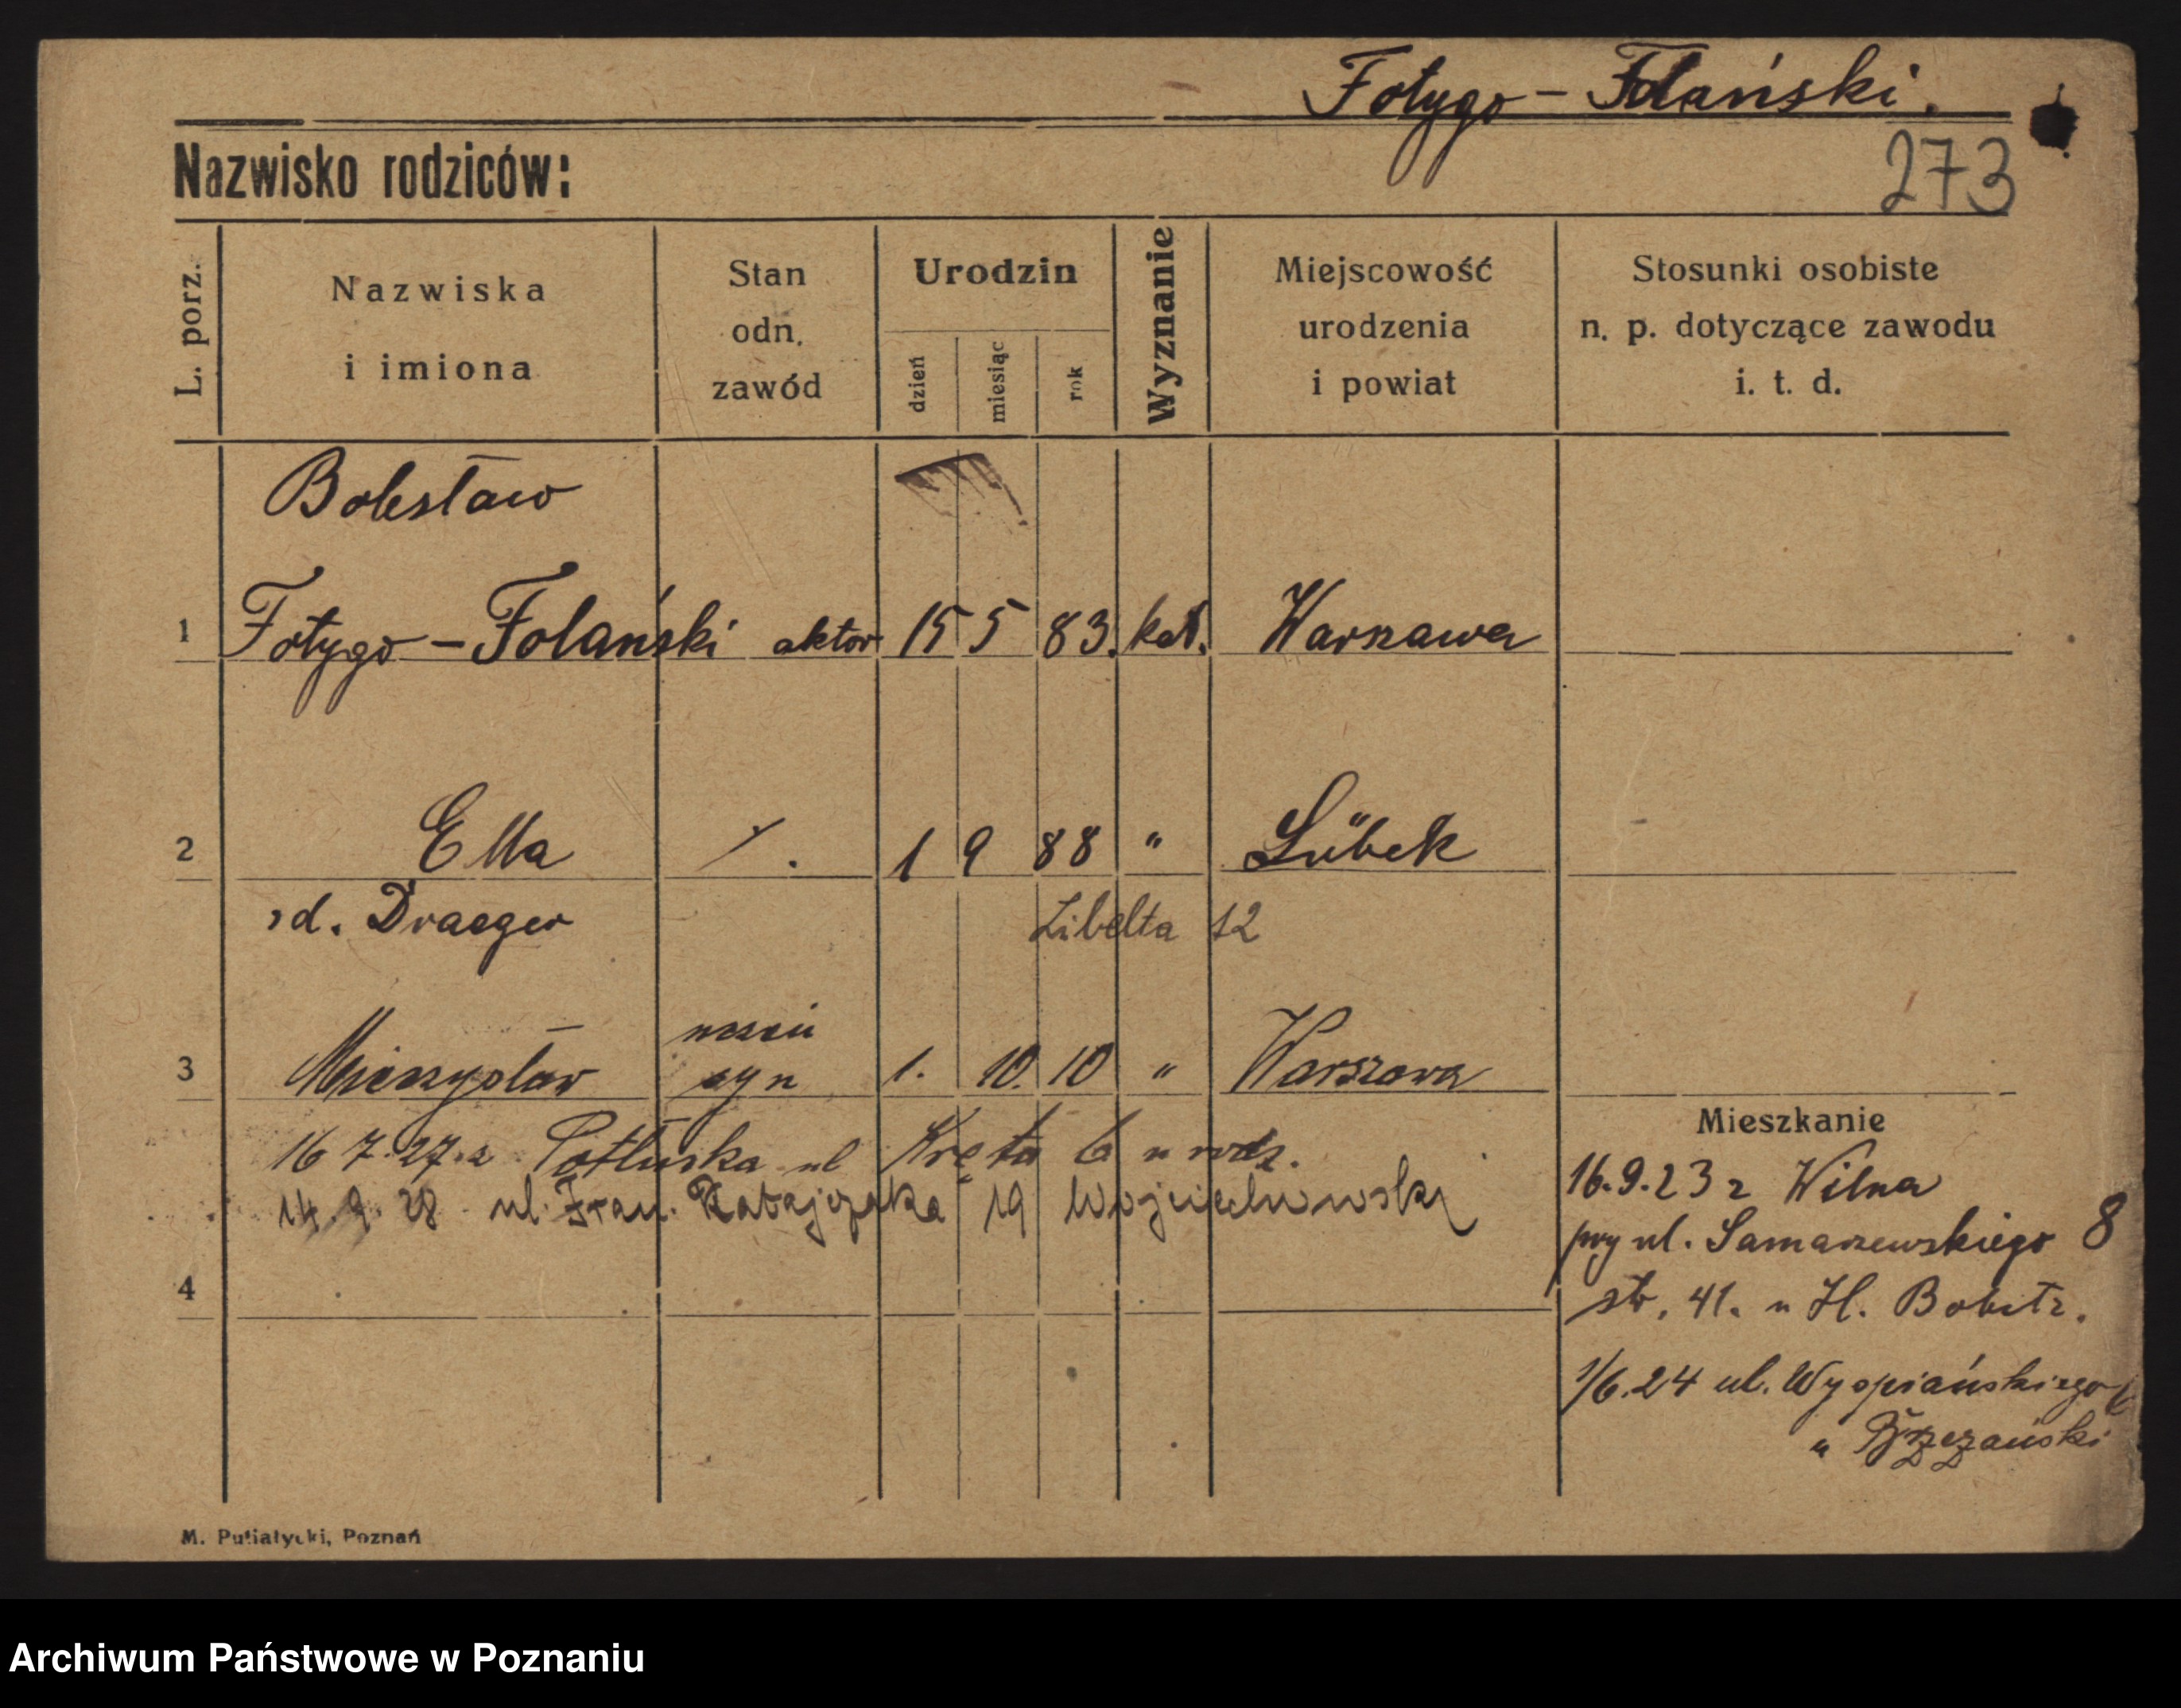 Fotygo – Folański.
Nazwisko rodziców:
273
L. porz.
Nazwiska i imiona
Stan odn. zawód
Urodzin
dzień
miesiąc
rok
Wyznanie
Miejscowość urodzenia i powiat
Stosunki osobiste n. p. dotyczące zawodu i. t. d.
Bolesław
1 Fotygo – Folański aktor 15 5 83. kat. Warszawa
2 Ella /. 1 9 88 " Lübek
rd. Draeger Libelta 12
uczeń
3 Mieczysław syn 1. 10. 10 " Warszawa
Mieszkanie
16 7.27. z ul Kręta 6 u rodz.
14. 9. 28 ul. Fran. Ratajczaka 19 Wojciechowski
4
16.9.23 z Wilna
przy ul. Samarzewskiego 8
str. 41. u H.
1/6.24 ul. Wyspiańskiego
u Brzezański
M. Putiatycki, Poznań
Archiwum Państwowe w Poznaniu